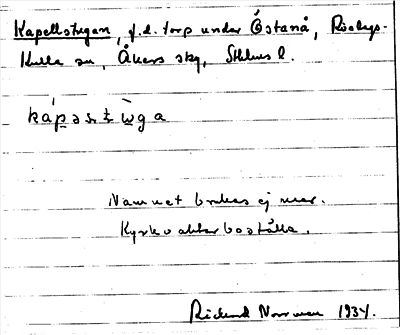 Kapellstugan, f.d. torp under Östanå, Roslags-
Kulla sn, Åkers skg, Sthlms l.
Namnet brukas ej mer.
Kyrkovaktarboställe.
Rickard Norrman 1934.